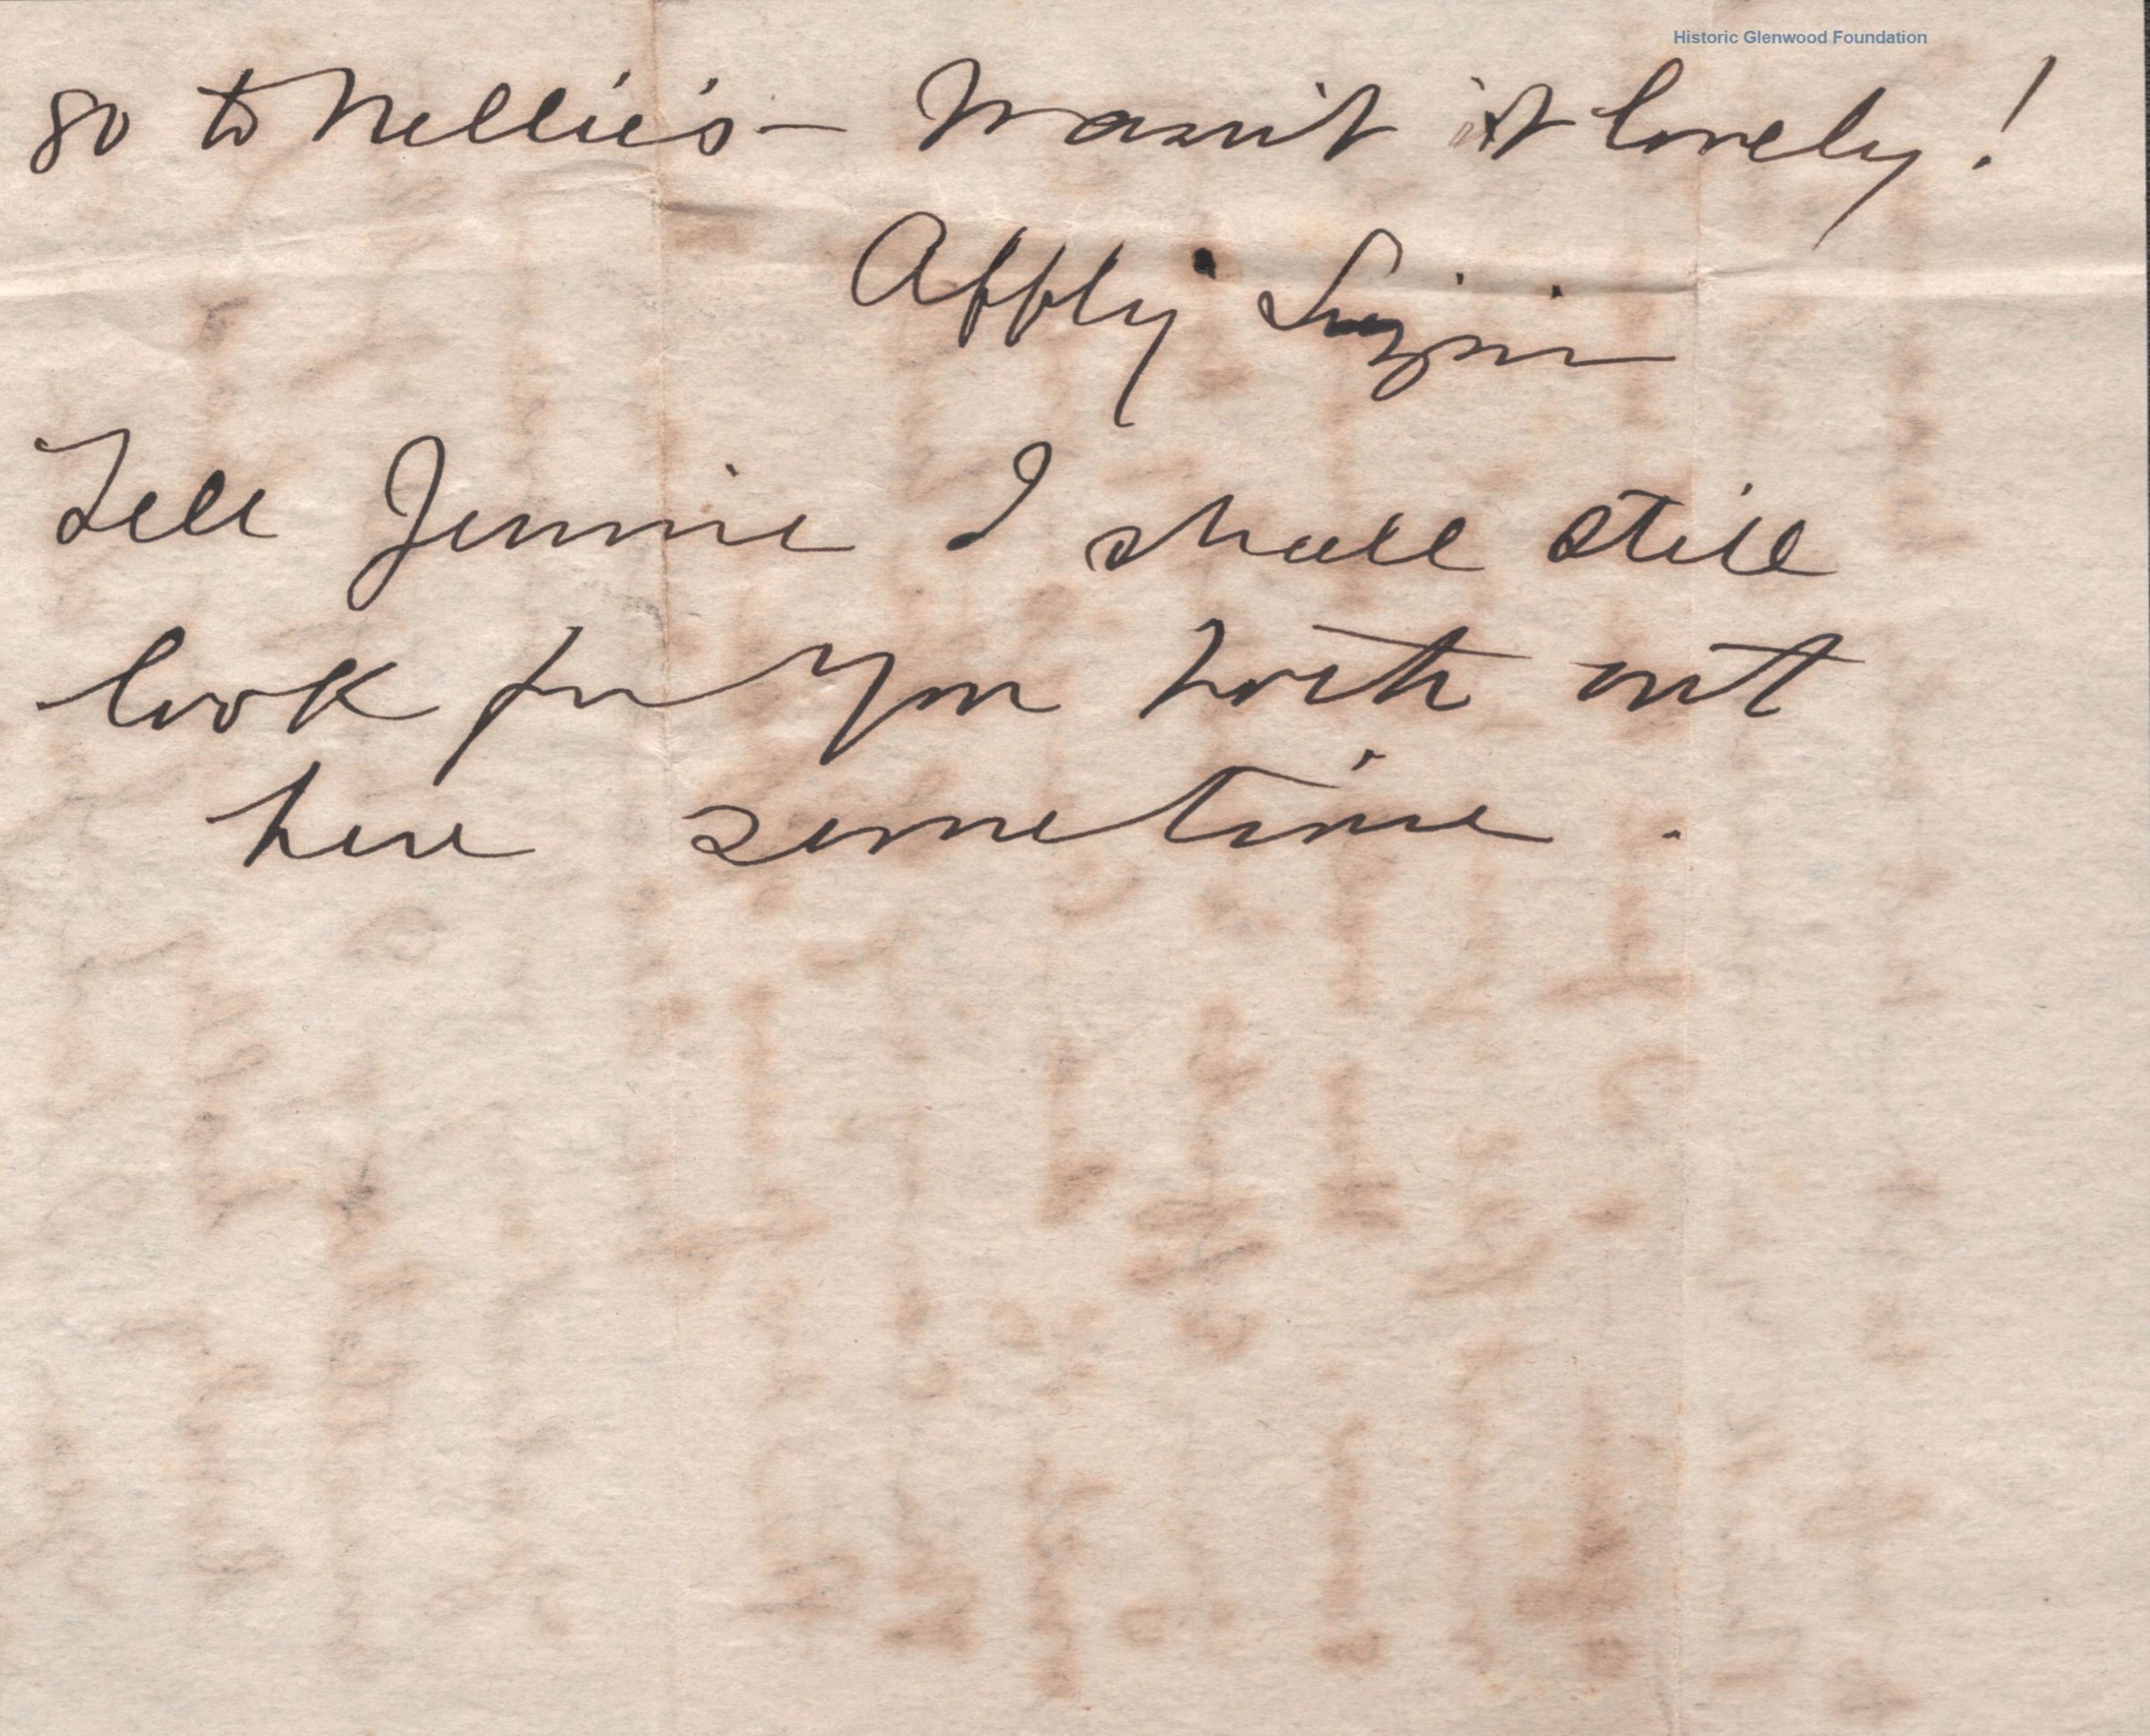 Historic Glenwood Foundation
go to Nellie's — Wasn't it lovely!
Affly Lizzie
Tell Jennie I shall still
look for you both out
here sometime.